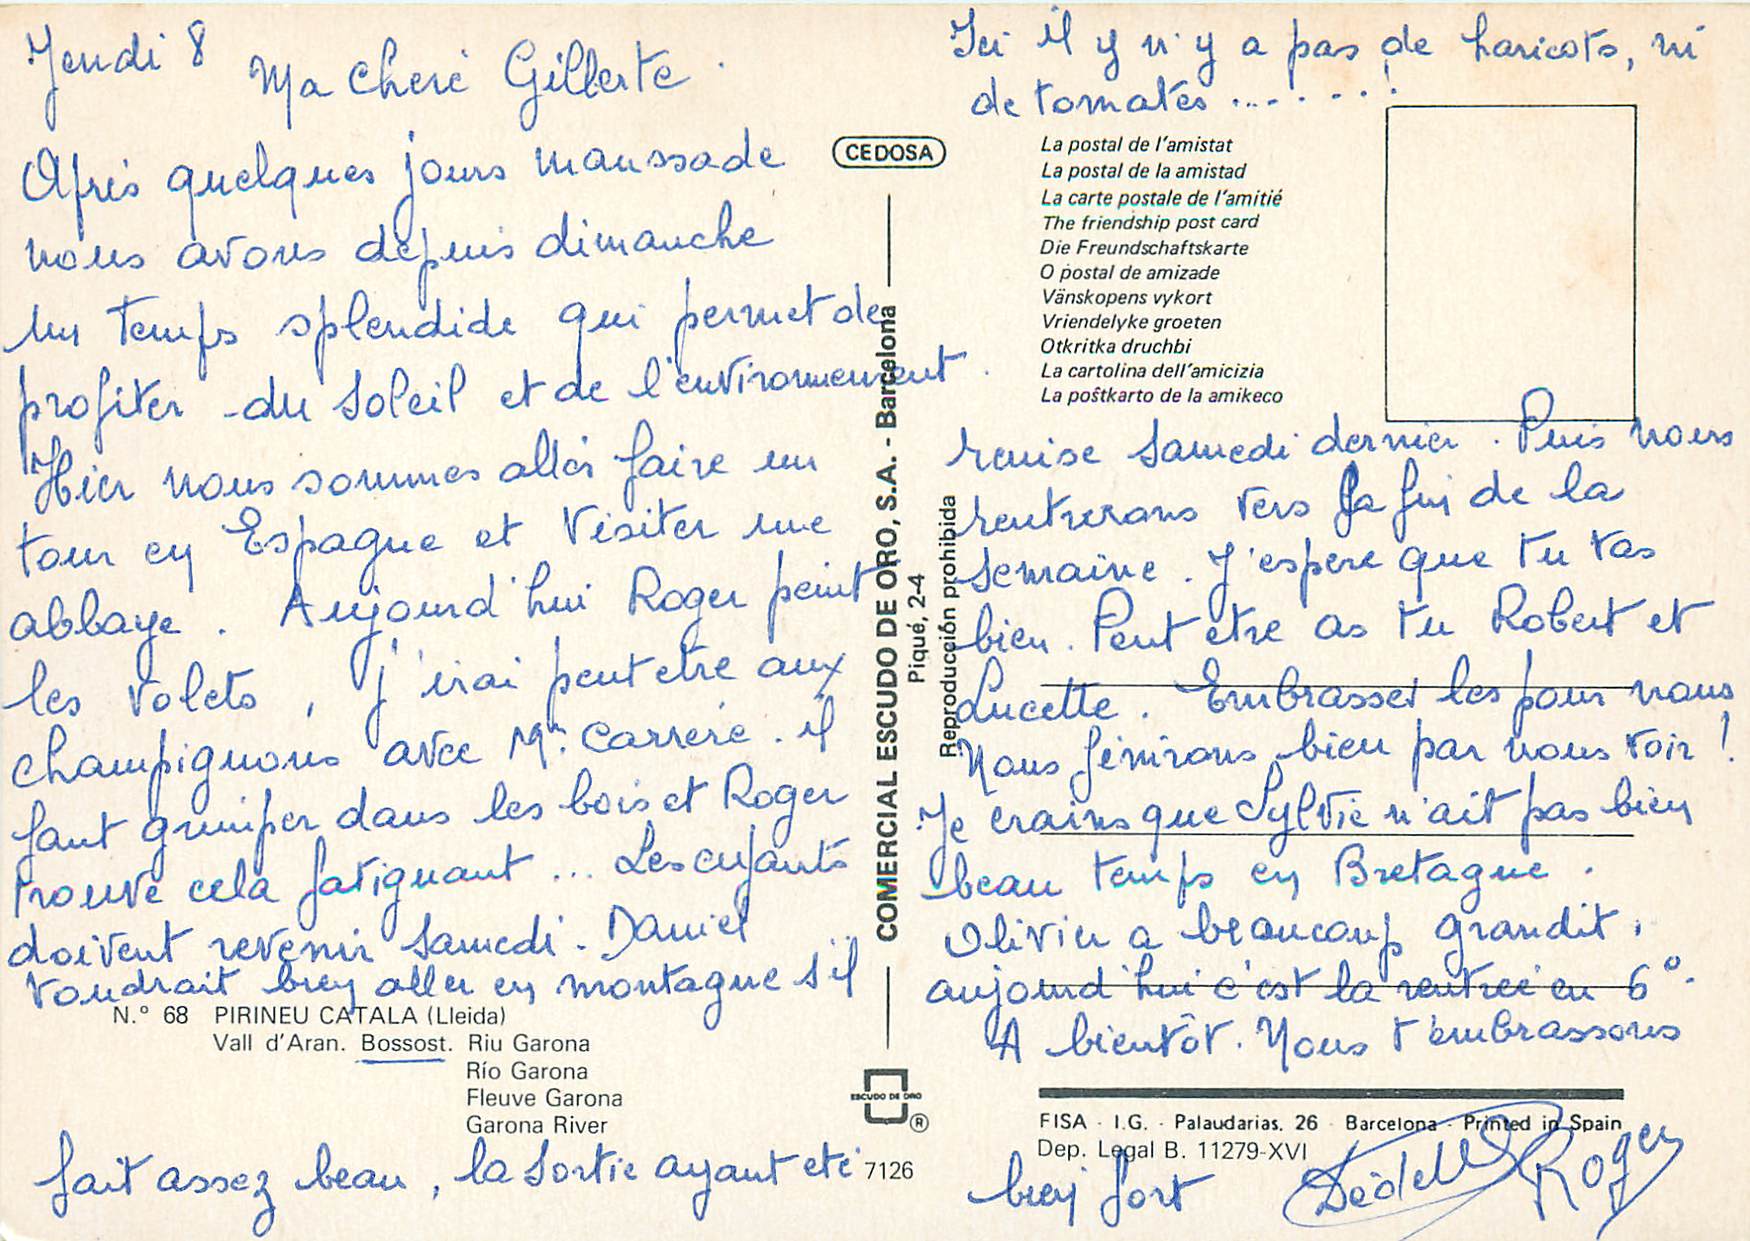 Jeudi 8 Ma cheré Gilberte.
Après quelques jours maussade
nous avons depuis dimanche
un temps splendide qui permet de
profiter du soleil et de l'environnement.
Hier nous sommes allés faire un
tour en Espagne et visiter une
abbaye. Aujourd'hui Roger peint
les volets, j'irai peut etre aux
champignons avec Mr. Carrère. il
faut grimper dans les bois et Roger
trouve cela fatiguant... Les enfants
doivent revenir Samedi. Daniel
voudrait bien aller en montagne s'il
N.º 68 PIRINEU CATALA (Lleida)
Vall d'Aran. Bossost. Riu Garona
Río Garona
Fleuve Garona
Garona River
fait assez beau, la sortie ayant eté
7126
CEDOSA
COMERCIAL ESCUDO DE ORO, S.A. - Barcelona
Piqué, 2-4
Reproducción prohibida
ESCUDO DE ORO
®
Ici il y n'y a pas de haricots, ni
de tomates .......!
La postal de l'amistat
La postal de la amistad
La carte postale de l'amitié
The friendship post card
Die Freundschaftskarte
O postal de amizade
Vänskopens vykort
Vriendelyke groeten
Otkritka druchbi
La cartolina dell'amicizia
La poŝtkarto de la amikeco
remise Samedi dernier. Puis nous
rentrerons vers la fin de la
semaine. J'espere que tu vas
bien. Peut etre as tu Robert et
Lucette. Embrasses les pour nous
Nous finirons bien par nous voir!
Je crains que Sylvie n'ait pas bien
beau temps en Bretagne.
Olivier a beaucoup grandit,
aujourd'hui c'est la rentreé en 6º.
A bientôt. Nous t'embrassons
FISA - I.G. - Palaudarias, 26 - Barcelona - Printed in Spain
Dep. Legal B. 11279-XVI
bien fort Roger